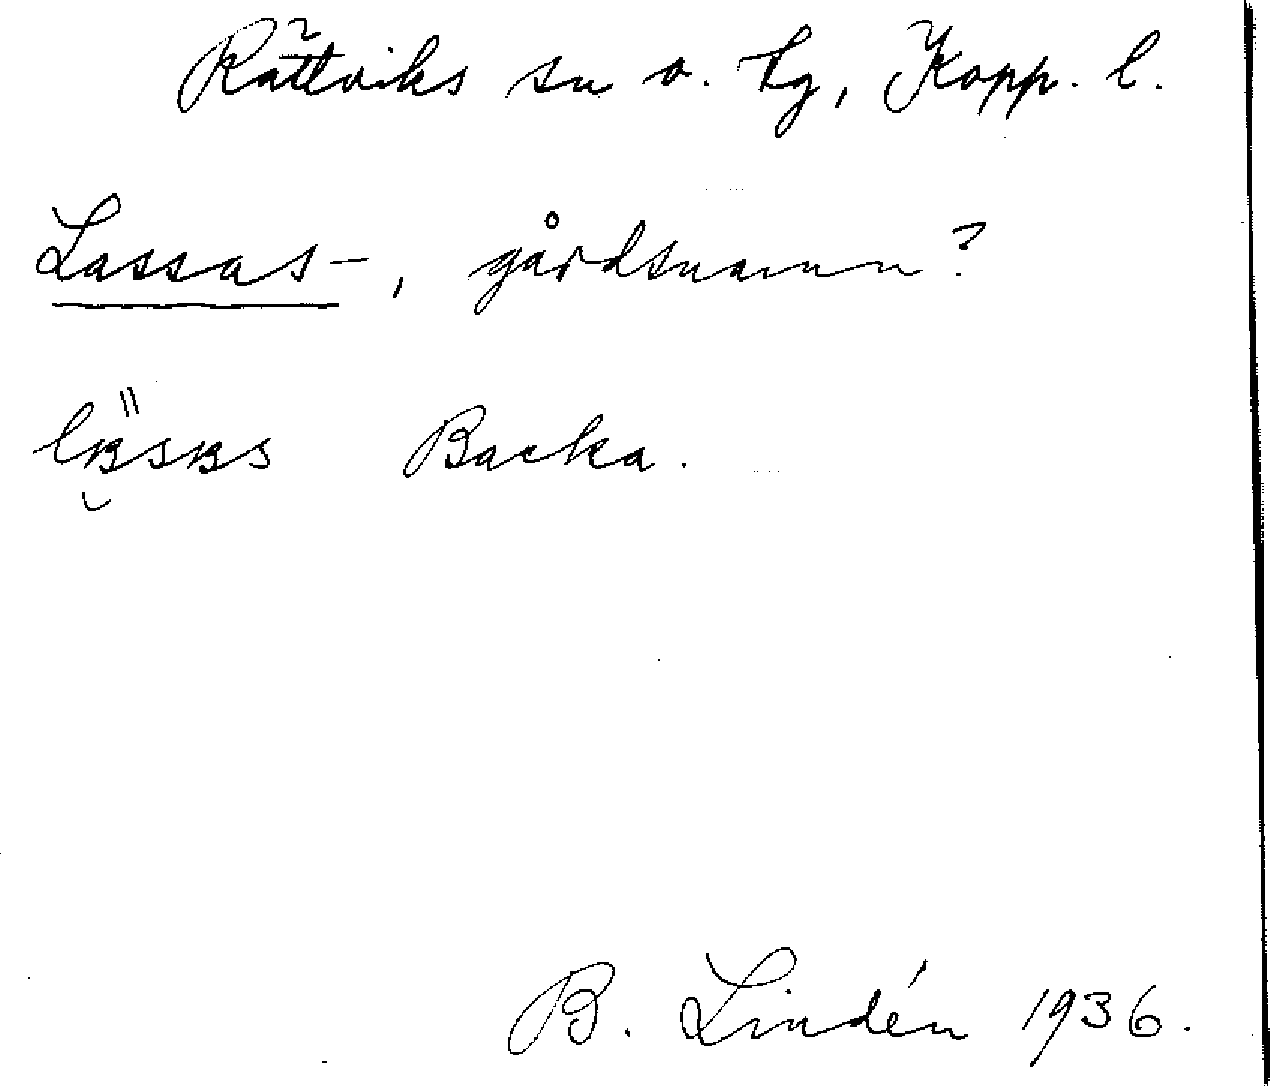 Rättviks sn o. tg, Kopp. l.
Lassas-, gårdsnamn?
Backa.
B. Lindén 1936.